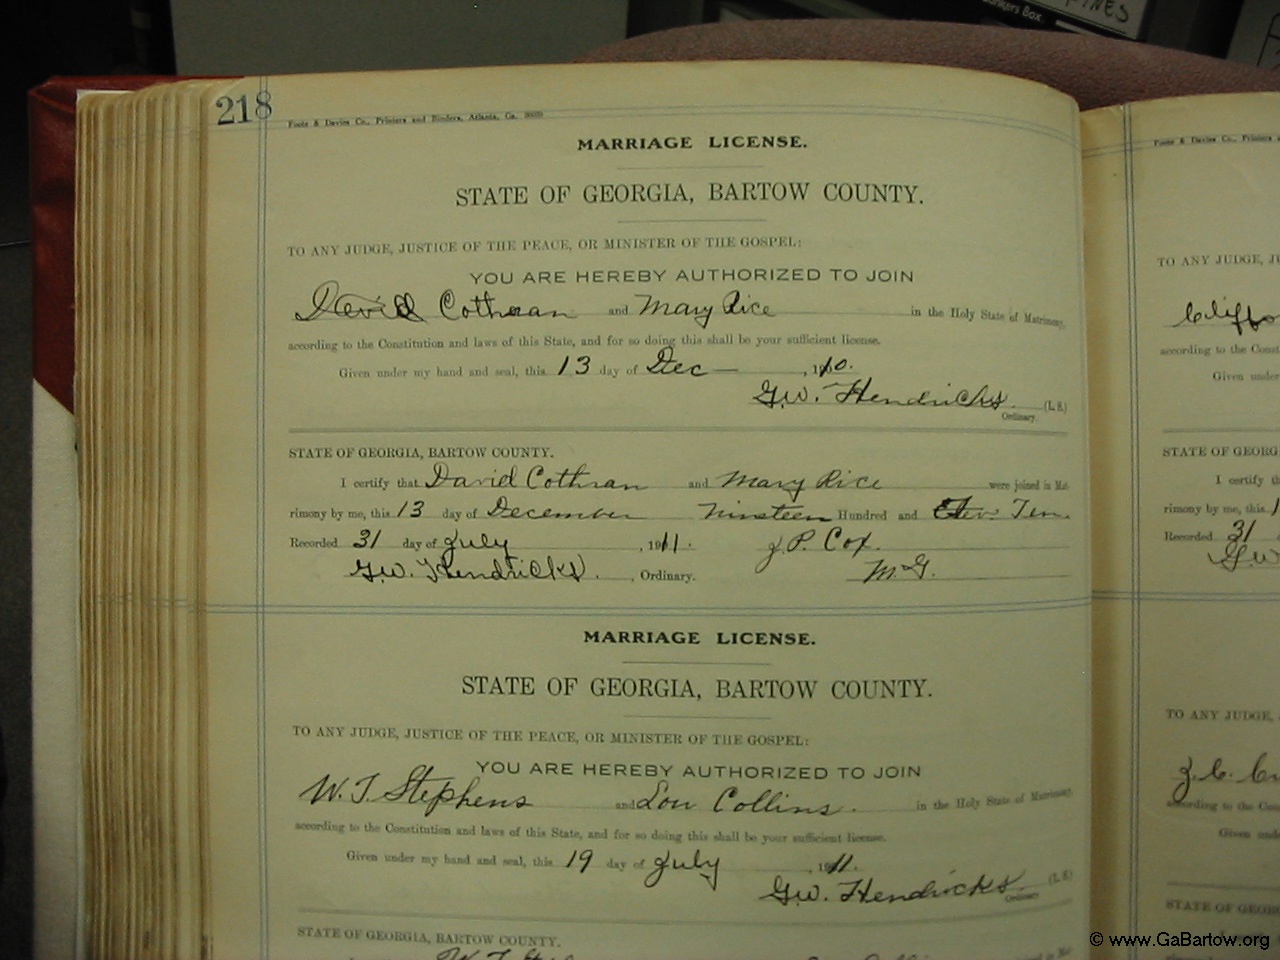 PINES
Bankers Box.
218
Foote & Davies Co., Printers and Binders, Atlanta, Ga.
MARRIAGE LICENSE.
STATE OF GEORGIA, BARTOW COUNTY.
TO ANY JUDGE, JUSTICE OF THE PEACE, OR MINISTER OF THE GOSPEL:
YOU ARE HEREBY AUTHORIZED TO JOIN
David Cothran and Mary Rice in the Holy State of Matrimony,
according to the Constitution and laws of this State, and for so doing this shall be your sufficient license.
Given under my hand and seal, this 13 day of Dec , 1910.
G.W. Hendricks (L.S.)
Ordinary.
STATE OF GEORGIA, BARTOW COUNTY.
I certify that David Cothran and Mary Rice were joined in Mat-
rimony by me, this 13 day of December Nineteen Hundred and Ten.
Recorded 31 day of July , 1911. J.P. Cox.
G.W. Hendricks. , Ordinary. M.G.
MARRIAGE LICENSE.
STATE OF GEORGIA, BARTOW COUNTY.
TO ANY JUDGE, JUSTICE OF THE PEACE, OR MINISTER OF THE GOSPEL:
YOU ARE HEREBY AUTHORIZED TO JOIN
W.T. Stephens and Lou Collins. in the Holy State of Matrimony,
according to the Constitution and laws of this State, and for so doing this shall be your sufficient license.
Given under my hand and seal, this 19 day of July , 1911.
G.W. Hendricks (L.S.)
Ordinary.
STATE OF GEORGIA, BARTOW COUNTY.
Foote & Davies Co., Printers
TO ANY JUDGE, JU
according to the Const
Given under
STATE OF GEORG
I certify th
rimony by me, this 1
Recorded 31
G.W
TO ANY JUDGE,
J.C.
according to the Con
Given und
STATE OF GEORG
© www.GaBartow.org